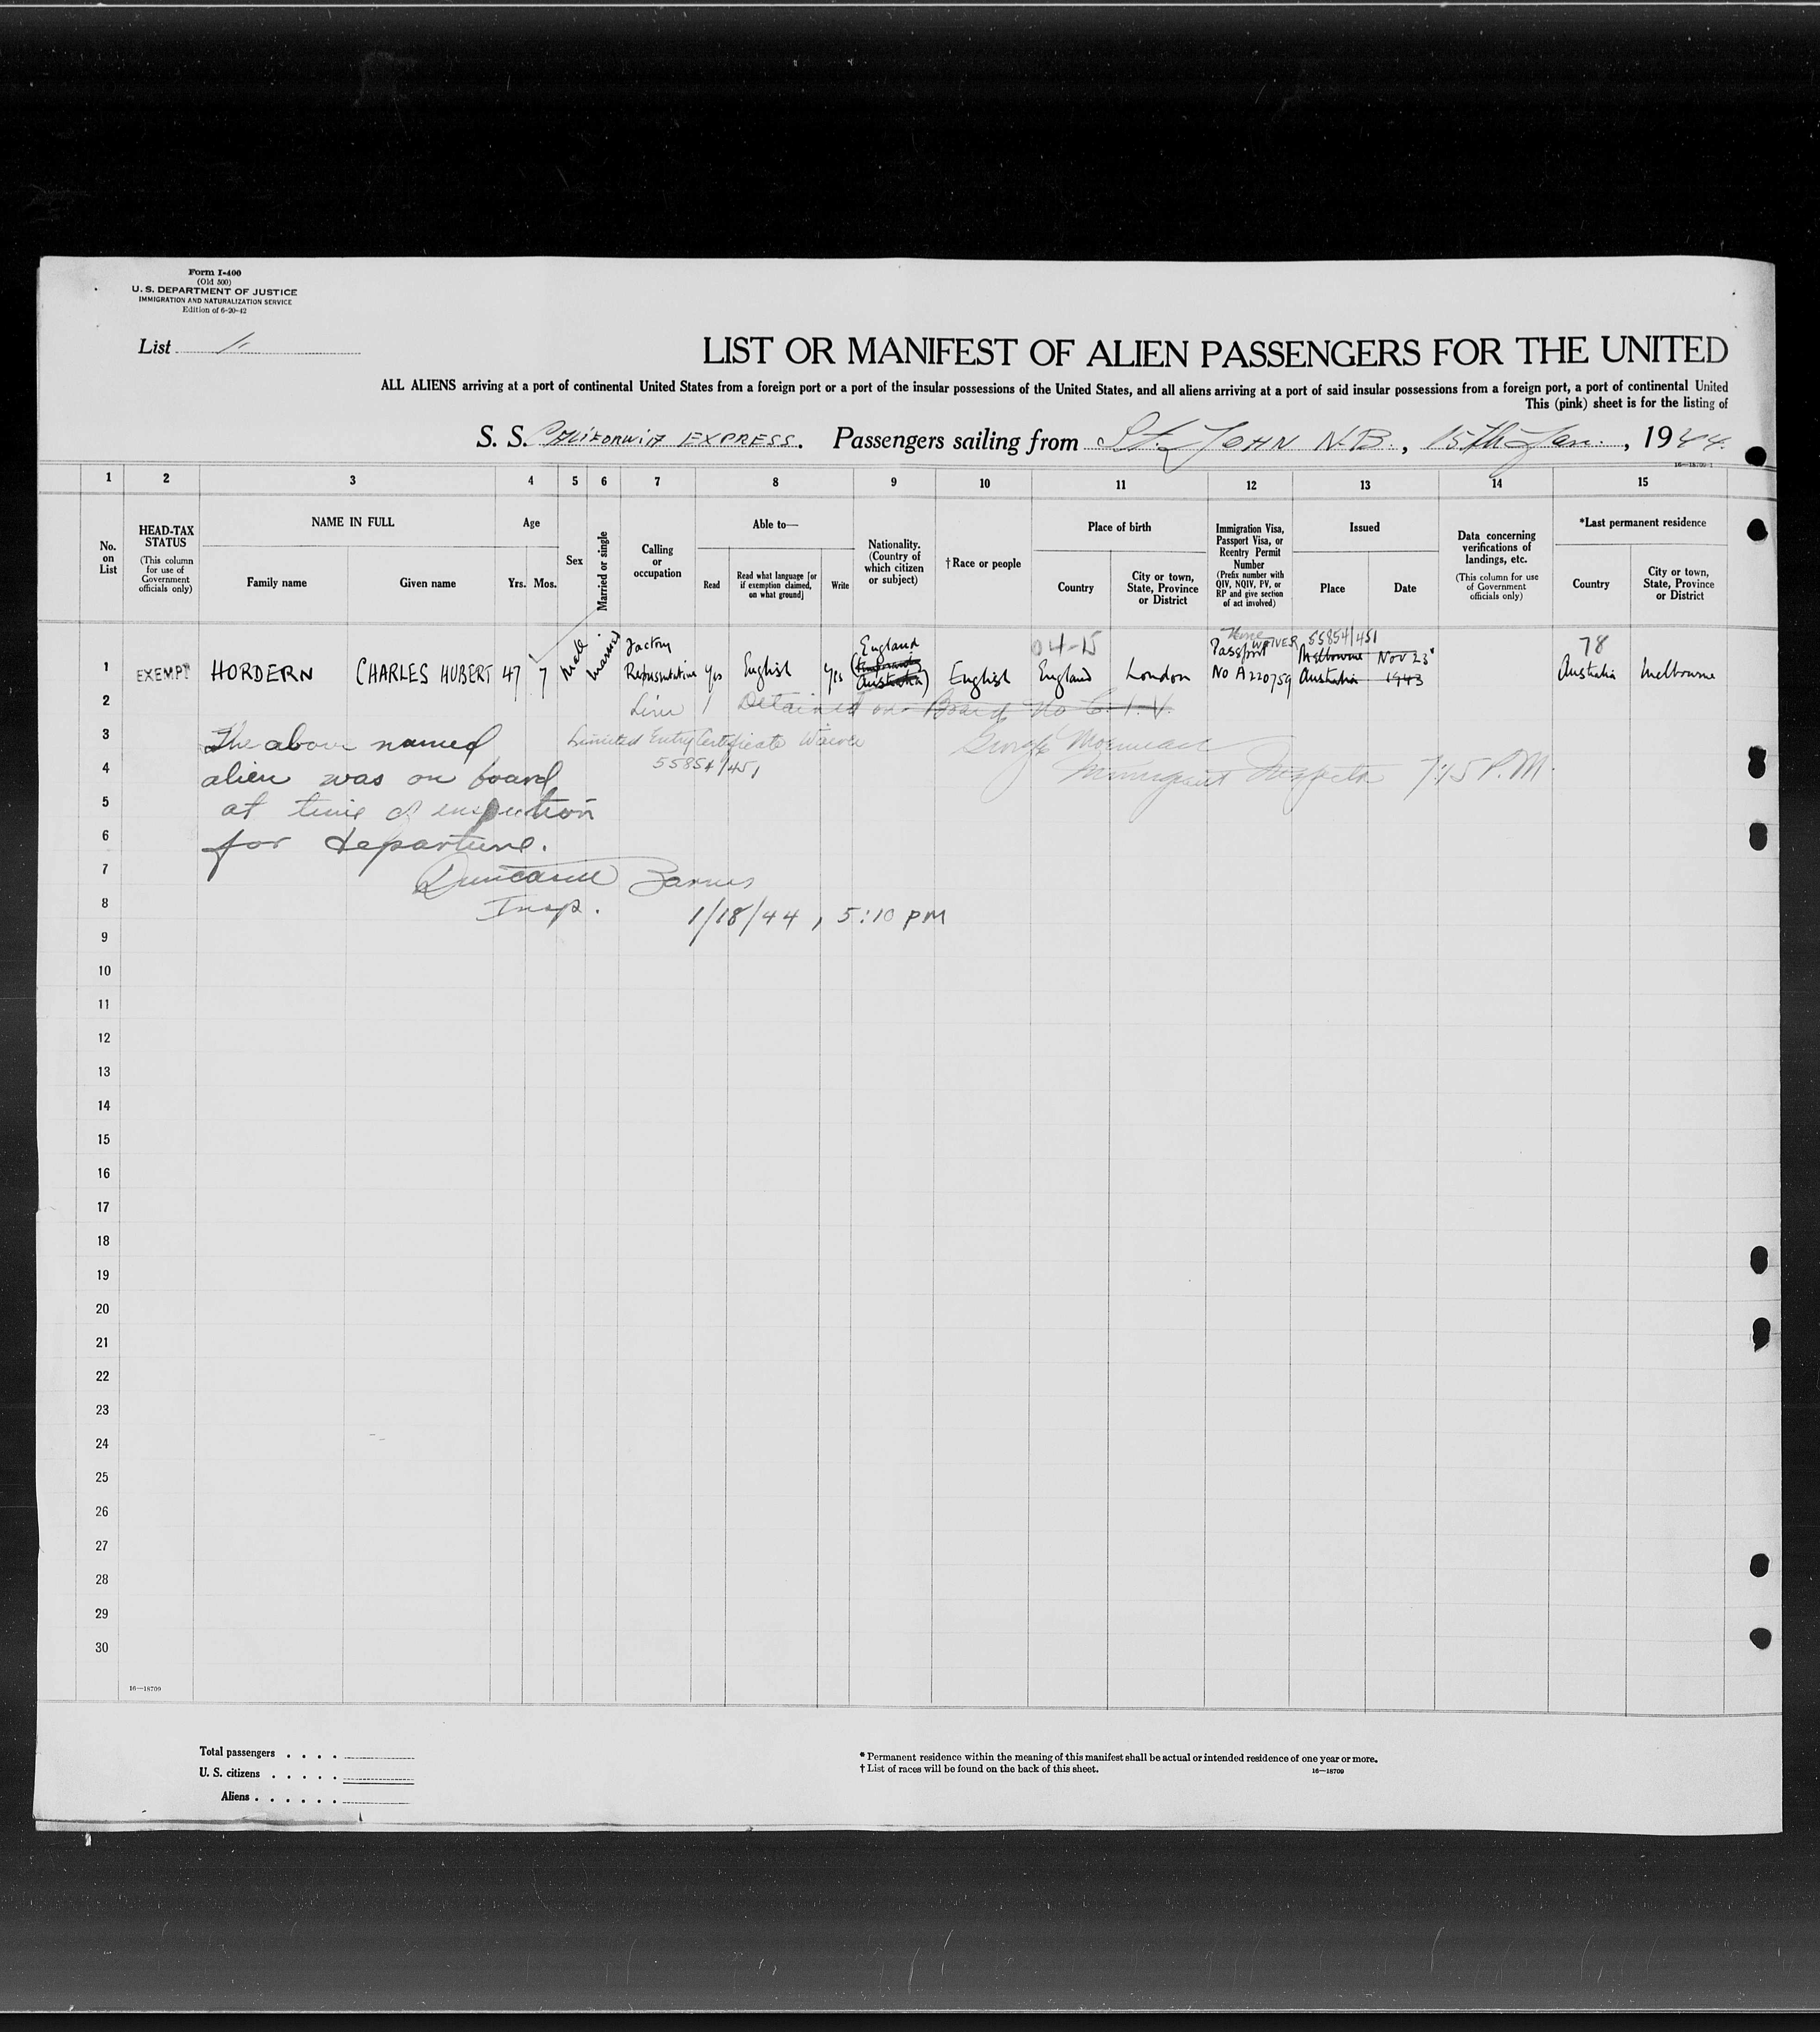 Form I-400
(Old 500)
U. S. DEPARTMENT OF JUSTICE
IMMIGRATION AND NATURALIZATION SERVICE
Edition of 6-20-42
List 1
LIST OR MANIFEST OF ALIEN PASSENGERS FOR THE UNITED
ALL ALIENS arriving at a port of continental United States from a foreign port or a port of the insular possessions of the United States, and all aliens arriving at a port of said insular possessions from a foreign port, a port of continental United
This (pink) sheet is for the listing of
S. S. CALIFORNIA EXPRESS. Passengers sailing from St. JOHN N.B., 15th Jan., 1944.
16—18709-1
1 2 3 4 5 6 7 8 9 10 11 12 13 14 15
No. on List
HEAD-TAX STATUS
(This column for use of Government officials only)
NAME IN FULL
Family name
Given name
Age
Yrs. Mos.
Sex
Married or single
Calling or occupation
Able to—
Read
Read what language [or if exemption claimed, on what ground]
Write
Nationality. (Country of which citizen or subject)
†Race or people
Place of birth
Country
City or town, State, Province or District
Immigration Visa, Passport Visa, or Reentry Permit Number
(Prefix number with QIV, NQIV, PV, or RP and give section of act involved)
Issued
Place
Date
Data concerning verifications of landings, etc.
(This column for use of Government officials only)
*Last permanent residence
Country
City or town, State, Province or District
1 EXEMPT HORDERN CHARLES HUBERT 47 7 Male Married Factory Representative Yes English Yes England Australia English 04-15 England London WAIVER Passport No A220759 55854/451 Melbourne Australia Nov 23 1943 78 Australia Melbourne
2 Detained on Board No C. I. V.
3 The above named Limited Entry Certificate Waiver George
4 alien was on board 55854/451 Immigrant Inspector 7:15 P.M.
5 at time of inspection
6 for departure.
7 Barnes
8 Insp. 1/18/44, 5:10 PM
9
10
11
12
13
14
15
16
17
18
19
20
21
22
23
24
25
26
27
28
29
30
16—18709
Total passengers . . . .
U. S. citizens . . . . .
Aliens . . . . . .
* Permanent residence within the meaning of this manifest shall be actual or intended residence of one year or more.
† List of races will be found on the back of this sheet.
16—18709